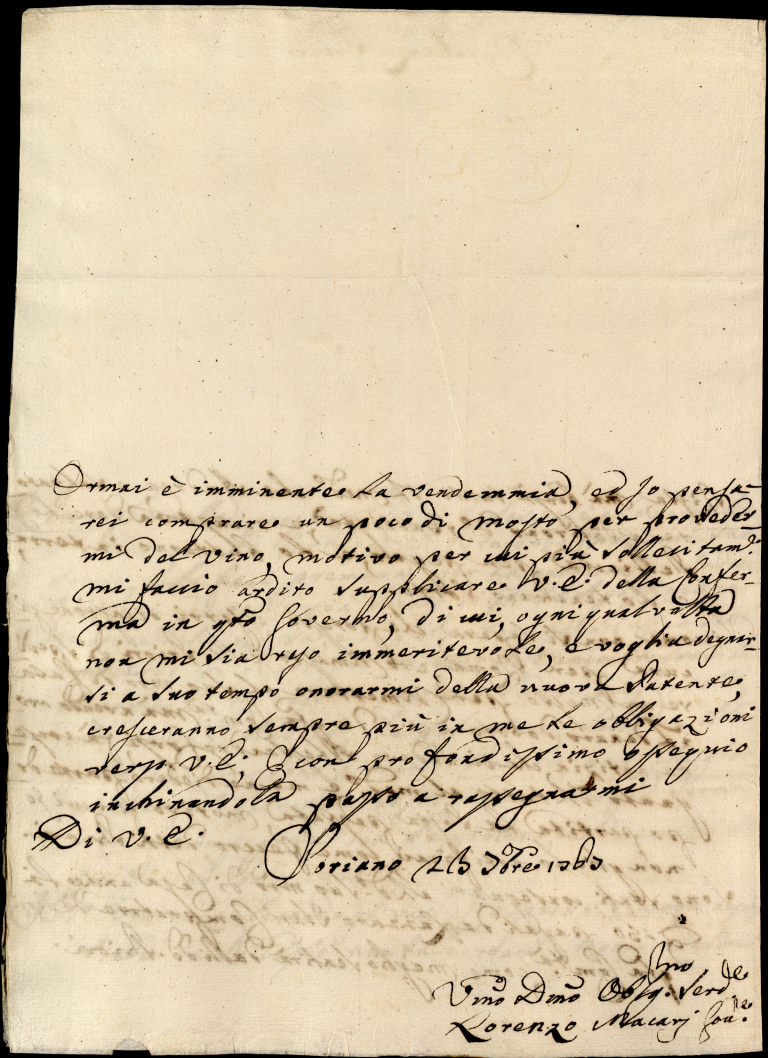 Ormai è imminente la vendemmia, ed Io pensa-
rei comprare un poco di mosto per proveder-
mi del vino, motivo per cui più sollecitam.e
mi faccio ardito supplicare V.E. della Confer-
ma in qto Governo, di cui, ogni qual volta
non mi sia reso immeritevole, e voglia degnar-
si a suo tempo onorarmi della nuova Patente,
cresceranno sempre più in me le obbligazioni
verso V.E., E con profondissimo ossequio
inchinandola passo a rassegnarmi
Di V.E.
Soriano 23 7bre 1763
Vmo Dmo Obsq.mo Serd.e
Lorenzo Macarj Gov.e